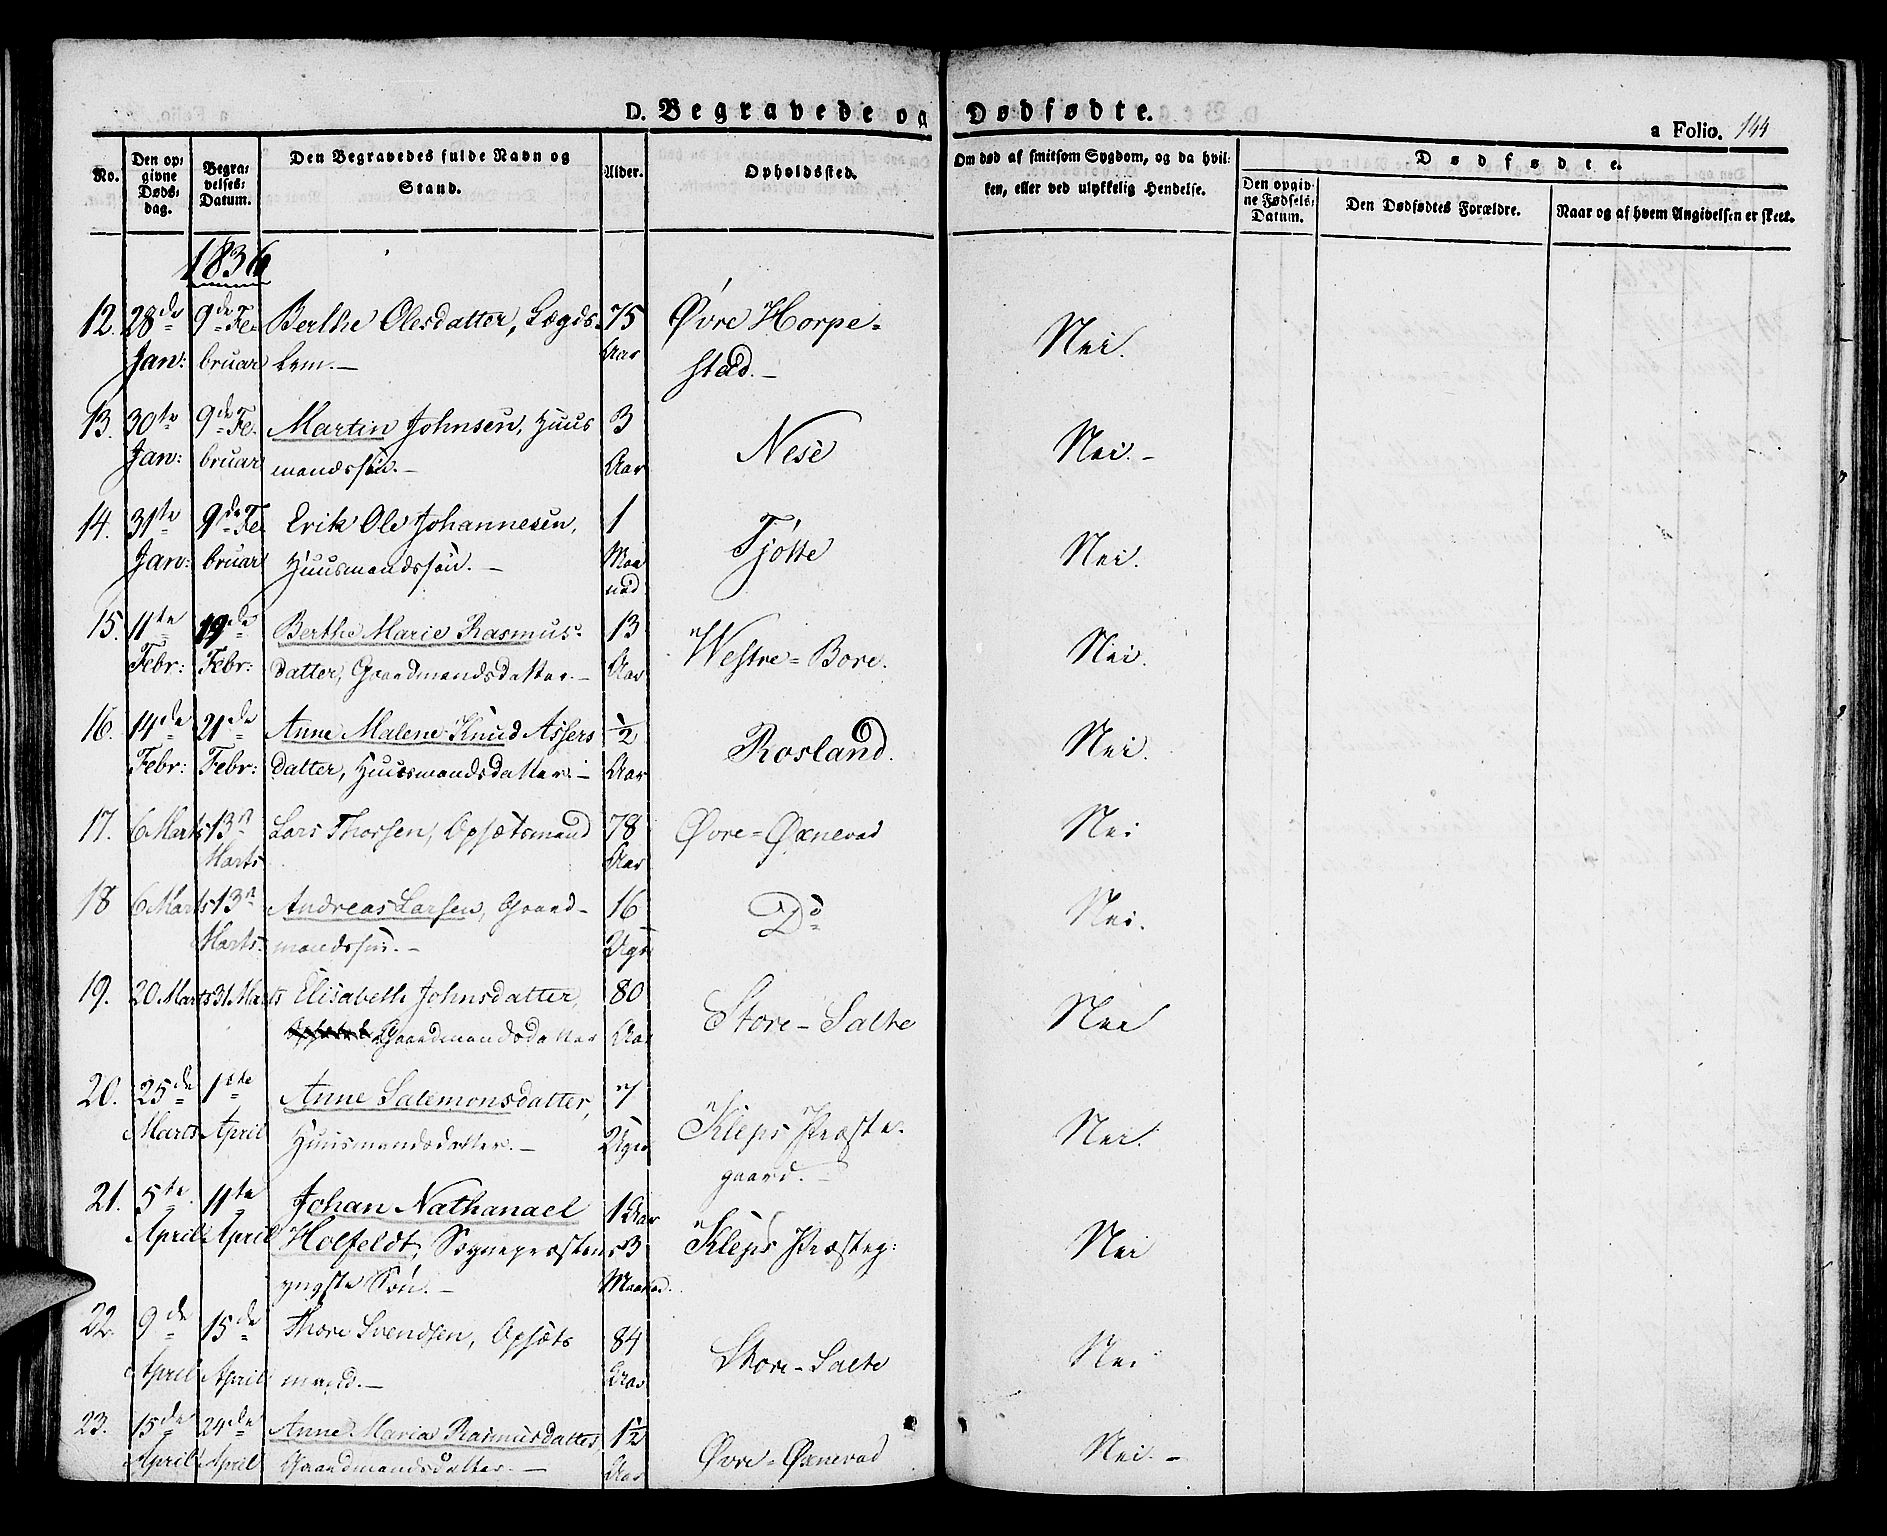 D. Begravede og Dødfødte.
a Folio. 144
No.
Den opgivne Døds-dag.
Begravelses-Datum.
Den Begravedes fulde Navn og Stand.
Alder.
Opholdssted.
Om død af smitsom Sygdom, og da hvilken, eller ved ulykkelig Hendelse.
Dødfødte.
Den opgivne Fødsels-Datum.
Den Dødfødtes Forældre.
Naar og af hvem Angivelsen er skeet.
1836
12. 28de 9de Fe- Berthe Olesdatter, Lægds- 75 Øvre Horpe-
Jan: bruar lem.— Aar stad.— Nei.
13. 30te 9de Fe- Martin Johnsen, Huus 3 Nese Nei.—
Jan: bruar mandssön.— Aar
14. 31te 9de Fe- Erik Ole Johannesen, 1 Tjötte Nei.
Jan: bruar Huusmandssön.— Maa
ned
15. 11te 19de Berthe Marie Rasmus- 13 Westre-Bore. Nei.
Febr: Febr: datter, Gaardmandsdatter.— Aar
16. 14de 21de Anne Malene Knud Assers ½ Rosland. Nei.
Febr: Febr: datter, Huusmandsdatter.— Aar
17. 6 Marts 13n Lars Thorsen, Opsætsmand 78 Øvre-Øxnevad Nei
Marts Aar
18 6 Marts 13n Andreas Larsen, Gaard- 16 Do Nei.
Marts. mandssön.— Uger
19. 20 Marts 31 Marts Elisabeth Johnsdatter, 80 Store-Salte Nei
Gaardmandsdatter Aar
20. 25de 1ste Anne Salemonsdatter, 7 Kleps Præste-
Marts April Huusmandsdatter.— Uger gaard.— Nei.
21. 5te 11te Johan Nathanael 1 Aar
April April Holfeldt, Sognepræstens 3 Kleps Præsteg: Nei
yngste Sön.— Maaned.
22. 9de 15de Thore Svendsen, Opsæts 84 Store-Salte Nei
April April mand.— Aar
23. 15de 24de Anne Maria Rasmusdatter 1½ Øvre-Øxnevad Nei.—
April April Gaardmandsdatter.— Aar